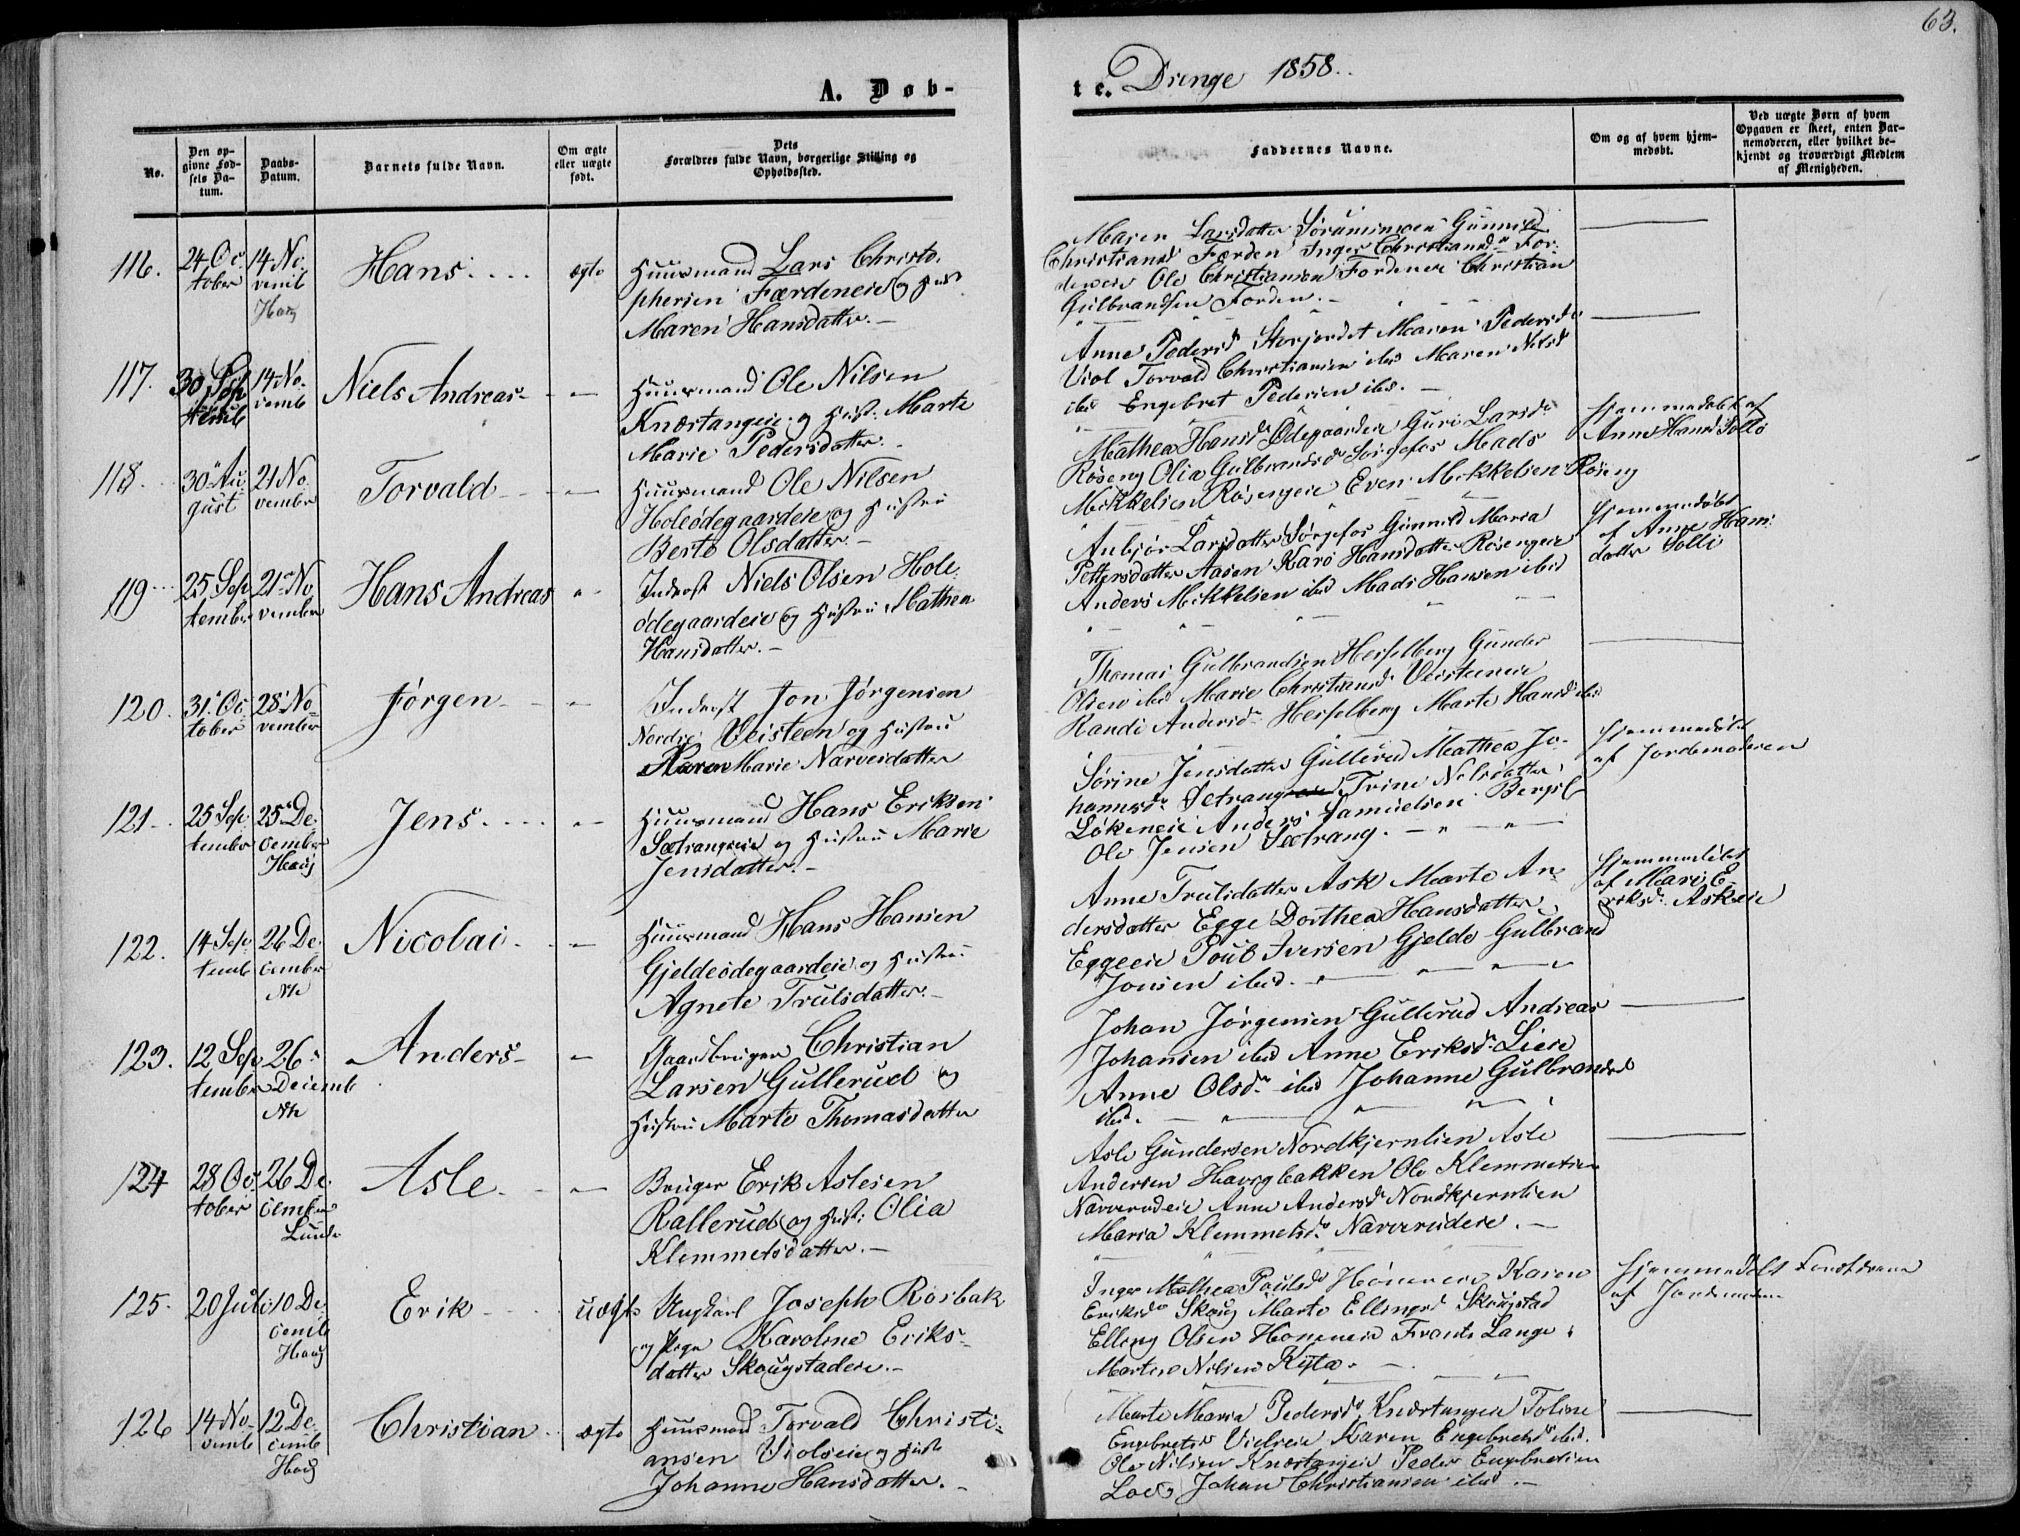 63.
A. Døb-
te. Drenge 1858.
No.
Den op-
givne Fød-
sels Da-
tum.
Daabs-
Datum.
Barnets fulde Navn.
Om ægte
eller uægte
født.
Dets
Forældres fulde Navn, borgerlige Stilling og
Opholdssted.
Faddernes Navne.
Om og af hvem hjem-
medøbt.
Ved uægte Børn af hvem
Opgaven er skeet, enten Bar-
nemoderen, eller hvilket be-
kjendt og troværdigt Medlem
af Menigheden.
116.
24 Oc
tober
14 No
vemb
Haug
Hans
ægte
Huusmand Lars Christo
phersen Færdeneie og Hust
Maren Hansdatter
Maren Larsdatter Gunnild
Christiansd Færden Inger Christiansd For
deneie Ole Christiansen Fordeneie Christian
Gulbrandsen Forden
117.
30 Sep
temb
14 No
vemb
Niels Andreas
Huusmand Ole Nilsen
Knæstangeie og Hust. Marte
Marie Pedersdatter
Anne Pedersd Storjordet Maren Pedersd
Viol Torvald Christiansen ibd Maren Nilsd
ibd Engebret Pedersen ibd.
118.
30 Au
gust
21 No
vember
Torvald
Huusmand Ole Nilsen
Holeødegaardeie og Hustru
Berte Olsdatter
Mathea Hansd Ødegaarden Guri Larsd
Røseng Olia Gulbrandsd Sørgefos Mads
Mikkelsen Røsengeie Even Mikkelsen Røseng
Hjemmedøbt af
Anne Hansd Solli
119
25 Sep
tember
21 No
vember
Hans Andreas
Inderst Niels Olsen Hole
ødegaardeie og Hustru Mathea
Hansdatter
Anbjør Larsdatter Sørgefos Gunnild Maria
Pettersdatter Aasen Kari Hansdatter Røsengeie
Anders Mikkelsen ibd Mads Hansen ibd
Hjemmedøbt
af Anne Hans
datter Solli
120.
31 Oc
tober
28 No
vember
Jørgen
Inderst Jon Jørgensen
Nordre Veisteen og Hustru
Karen Marie Narvesdatter
Thomas Gulbrandsen Hesselberg Gunder
Olsen ibd Marie Christiansd Veisteneie
Randi Andersd Hesselberg Marte Hansd ibd
121
25 Sep
tember
25 De
cember
Haug
Jens
Huusmand Hans Eriksen
Sætrangeie og Hustru Marie
Jensdatter
Sørine Jensdatter Gullerud Mathea Jo-
hannesd Setrang Trine Nilsdatter
Løkeneie Anders Samuelsen Bergs
Ole Jensen Sætrang.
Hjemmedøbt
af Jordemoderen
122.
14 Sep
temb
26 De
cember
Nicolai
Huusmand Hans Hansen
Gjeldeødegaardeie og Hustru
Agnete Trulsdatter
Anne Trulsdatter Ask Marte An
dersdatter Egge Dorthea Hansdatter
Eggeeie Poul Iversen Gjelde Gulbrand
Jonsen ibd.
Hjemmedøbt
af Mari E
riksd Askeie
123.
12 Sep
tember
26
Decemb
Anders
Gaardbruger Christian
Larsen Gullerud og
Hustru Marte Thomasdatter
Johan Jørgensen Gullerud Andreas
Johansen ibd Anne Eriksd Lieie
Anne Olsd ibd Johanne Gulbrandsd
ibd.
124
28 Oc
tober
26 De
cember
Lunde
Asle
Bruger Erik Aslesen
Rallerud og Hust: Olia
Klemmetsdatter
Asle Gundersen Nordkjernlien Asle
Andersen Haugbakken Ole Klemmetsen
Narverudeie Anne Andersd Nordkjernlien
Maria Klemmetsd Narverudeie
125.
20 Juli
10 De
cemb
Haug
Erik
uægte
Ungkarl Joseph Rosbak
og Pige Karoline Eriks-
datter Skougstadeie
Inger Mathea Poulsd Høneneie Karen
Eriksd Skoug Marte Ellingsd Skougstad
Elling Olsen Honeneie Frants Lange
Martin Nilsen Kista
Hjemmedøbt
af Jordemoderen
126
14 No
vemb
12 De
cemb
Haug
Christian
ægte
Huusmand Torvald Christi-
ansen Violseie og Hust
Johanne Hansdatter
Marte Maria Pedersd Knæstangeie Toline
Engebretsd Violseie Karen Engebretsd ibd.
Ole Nilsen Knæstangeie Peder Engebretsen
Loe Johan Christiansen ibd